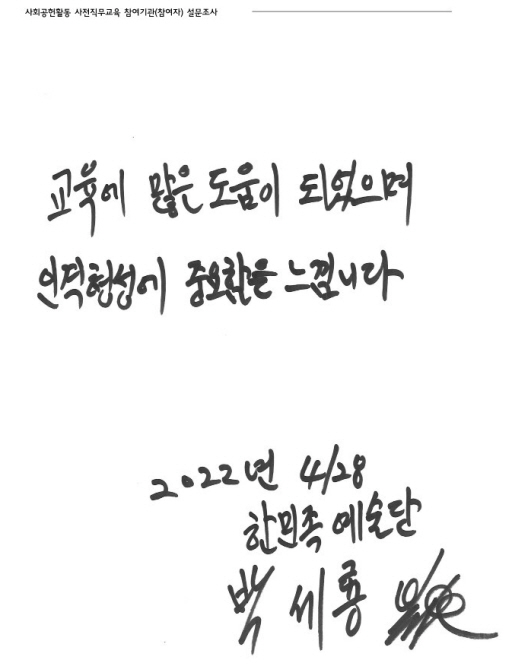 사회공헌활동 사전직무교육 참여기관(참여자) 설문조사
교육에 많은 도움이 되었으며
인격형성에 중요함을 느낍니다
2022년 4/28
한민족 예술단
박세룡